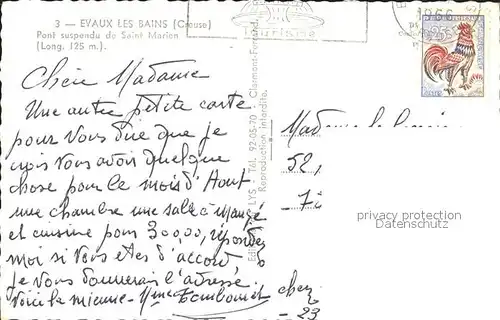 3 — EVAUX LES BAINS (Creuse)
Pont suspendu de Saint Marien
(Long. 125 m.)
Tourisme
Chère Madame
Une autre petite carte
pour vous dire que je
crois vous avoir quelque
chose pour le mois d'Aout
une chambre une salle à manger
et cuisine pour 30000, répondez
moi si vous etes d'accord
je vous donnerai l'adresse.
Voici la mienne - Mme
LYS - Tél. 92-05-70 - Clermont-Ferrand
Reproduction interdite.
Madame
52,
privacy protection
chez
- 23